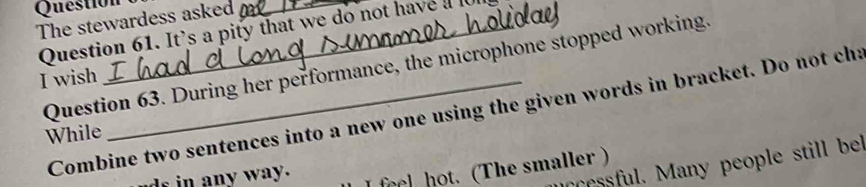 Question
The stewardess asked
Question 61. It's a pity that we do not have a
I wish I had a long summer holiday
Question 63. During her performance, the microphone stopped working.
While
Combine two sentences into a new one using the given words in bracket. Do not cha
in any way.
I feel hot. (The smaller )
Many people still bel